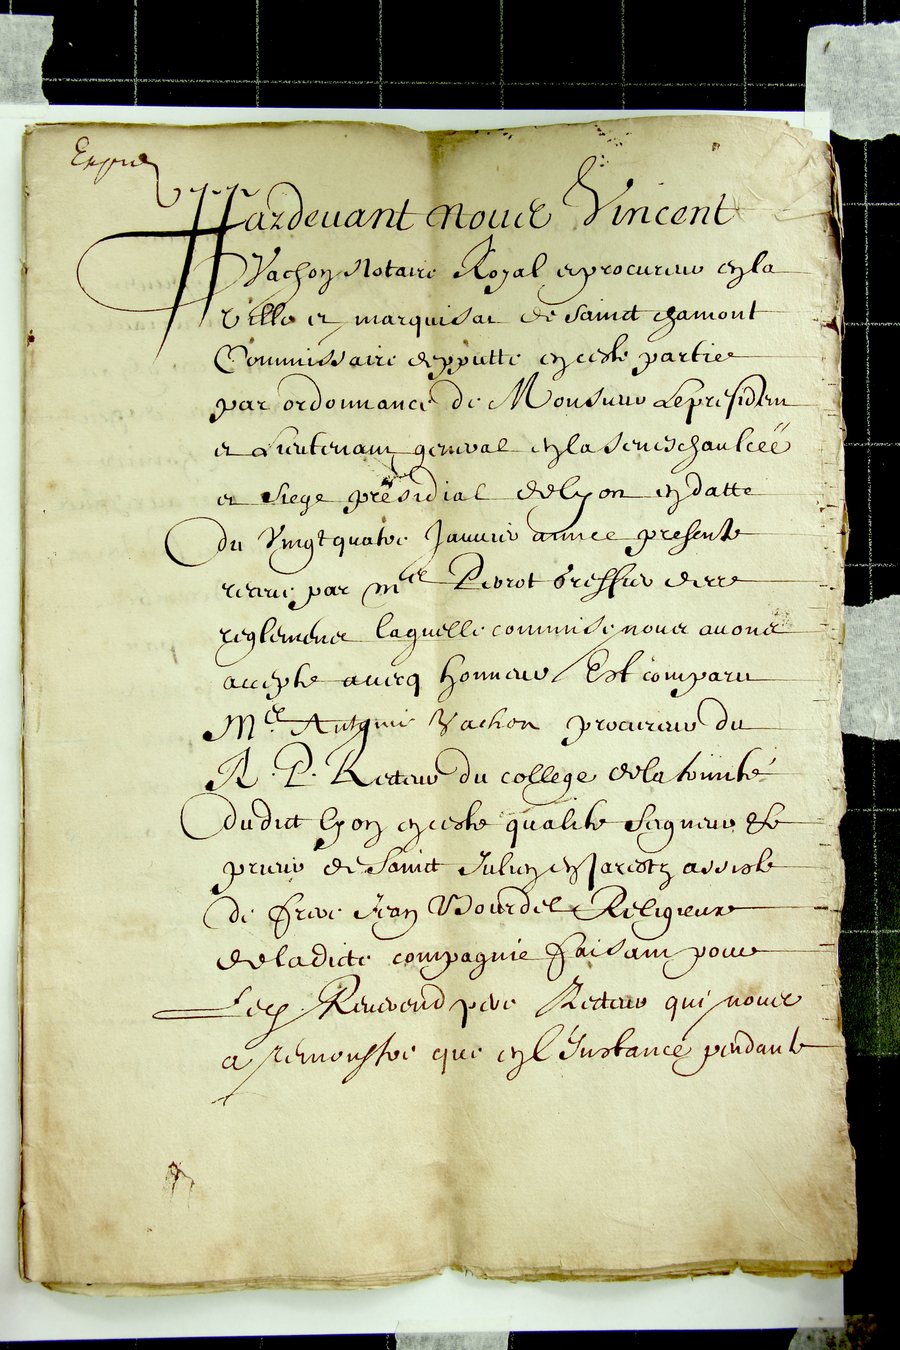 Pardevant nous Vincent
Vachon Notaire Royal et procureur en la
Ville et marquisat de Sainct chamont
Commissaire depputté en ceste partie
par ordonnance de Monsieur Le president
et Lieutenant general en la seneschaulcee
et siege presidial de Lyon en datte
du Vingt quatre Janvier annee presente
par Me greffier
laquelle commise nous avons
accepte avecq honneur Est comparu
Me. Anthoine Vachon procureur du
R. P. Recteur du college de la trinité
dudict Lyon en ceste qualité Seigneur &
prieur de Sainct Julien en Jarestz assisté
de frere Jean Bourdel Religieux
de ladicte compagnie faisant pour
Le Reverend pere Recteur qui nous
a remonstré que en l'Instance pendante